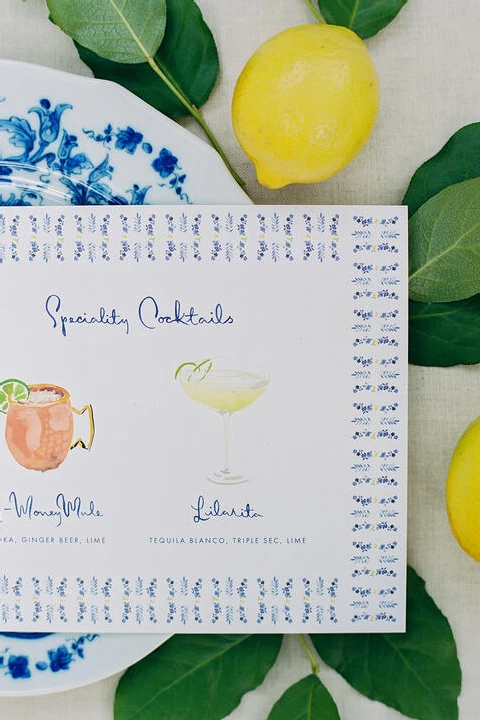 Speciality Cocktails
-Money Mule
KA, GINGER BEER, LIME
Lilarita
TEQUILA BLANCO, TRIPLE SEC, LIME